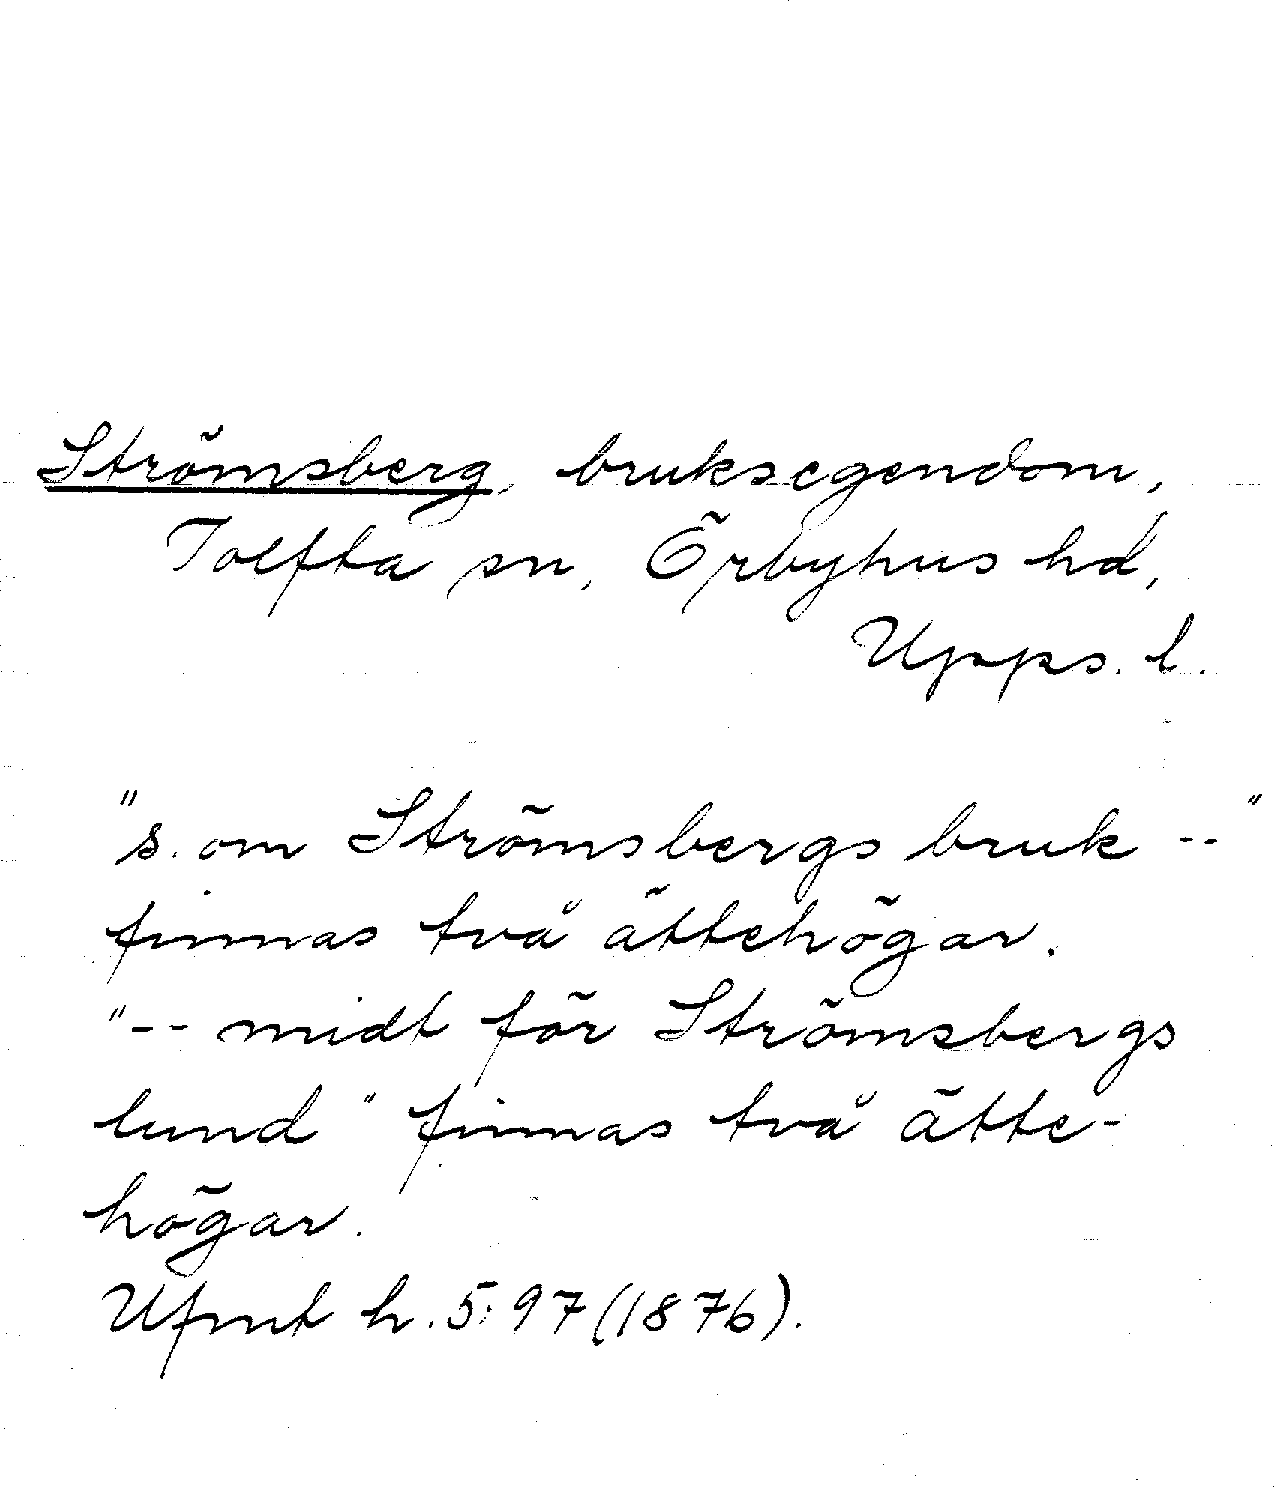 Strömsberg, bruksegendom,
Tolfta sn, Örbyhus hd,
Upps. l.
"s. om Strömsbergs bruk --"
finnas två ättehögar.
"-- midt för Strömsbergs
lund" finnas två ätte-
högar.
Ufmt h. 5: 97 (1876).